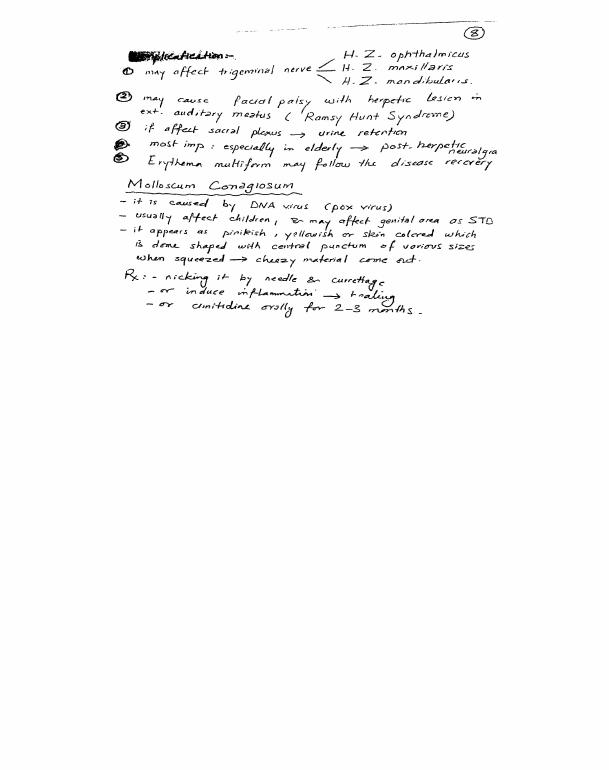 8
Complication:-
H. Z. ophthalmicus
① may affect trigeminal nerve H. Z. maxillaris
H. Z. mandibularis.
② may cause facial palsy with herpetic lesion in
ext. auditory meatus ( Ramsy Hunt Syndrome)
③ if affect sacral plexus → urine retention
④ most imp : especially in elderly → post. herpetic neuralgia
⑤ Erythema multiform may follow the disease recovery
Molloscum Conagiosum
- it is caused by DNA virus (pox virus)
- usually affect children, & may affect genital area as STD
- it appears as pinikish, yellowish or skin colored which
is dome shaped with central punctum of various sizes
when squeezed → cheezy material come out.
Rx: - nicking it by needle & currettage
- or induce inflammation → healing
- or cimitidine orally for 2-3 months.